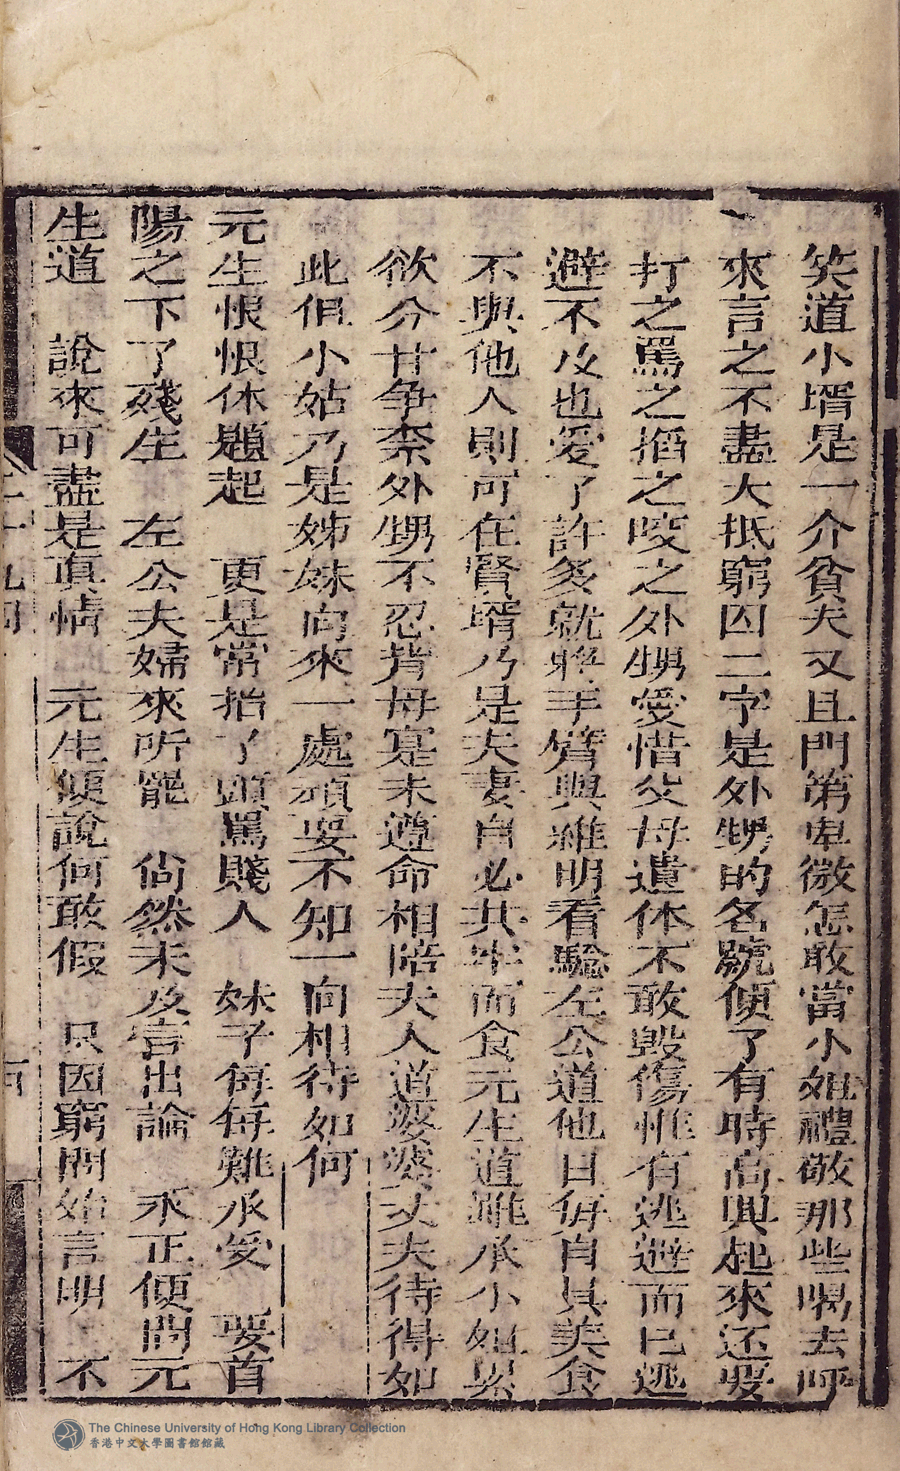 笑道小壻是一介貧夫又且門第卑微怎敢當小姐禮敬那些喝去呼
來言之不盡大抵窮囚二字是外甥的名號傾了有時高興起來还要
打之罵之搯之咬之外甥愛惜父母遺体不敢毀傷惟有逃避而已逃
避不及也愛了許多就將手臂與維明看驗左公道他日每自具美食
不與他人則可在賢壻乃是夫妻自必共牢而食元生道雖承小姐累
欲分甘争奈外甥不忍背母寔未遵命相陪夫人道婆婆丈夫待得如
此但小姑乃是姊妹向來一處頑耍不知一向相待如何
元生恨恨休題起　更是常抬了頭罵賤人　妹子每每難承愛　要首
陽之下了殘生　左公夫婦來听罷　尙然未及言出論　永正便問元
生道　說來可盡是真情　元生便說何敢假　只因窮問始言明　不
二十九回
The Chinese University of Hong Kong Library Collection
香港中文大學圖書館館藏